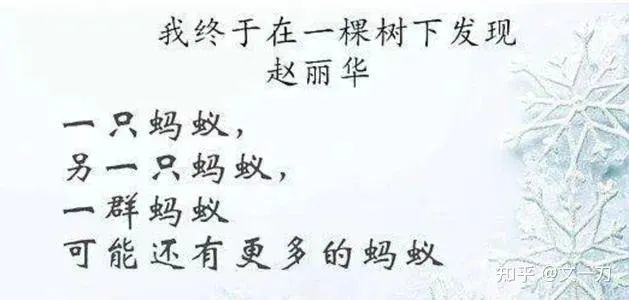 我终于在一棵树下发现
赵丽华
一只蚂蚁，
另一只蚂蚁，
一群蚂蚁
可能还有更多的蚂蚁
知乎 @文一刀